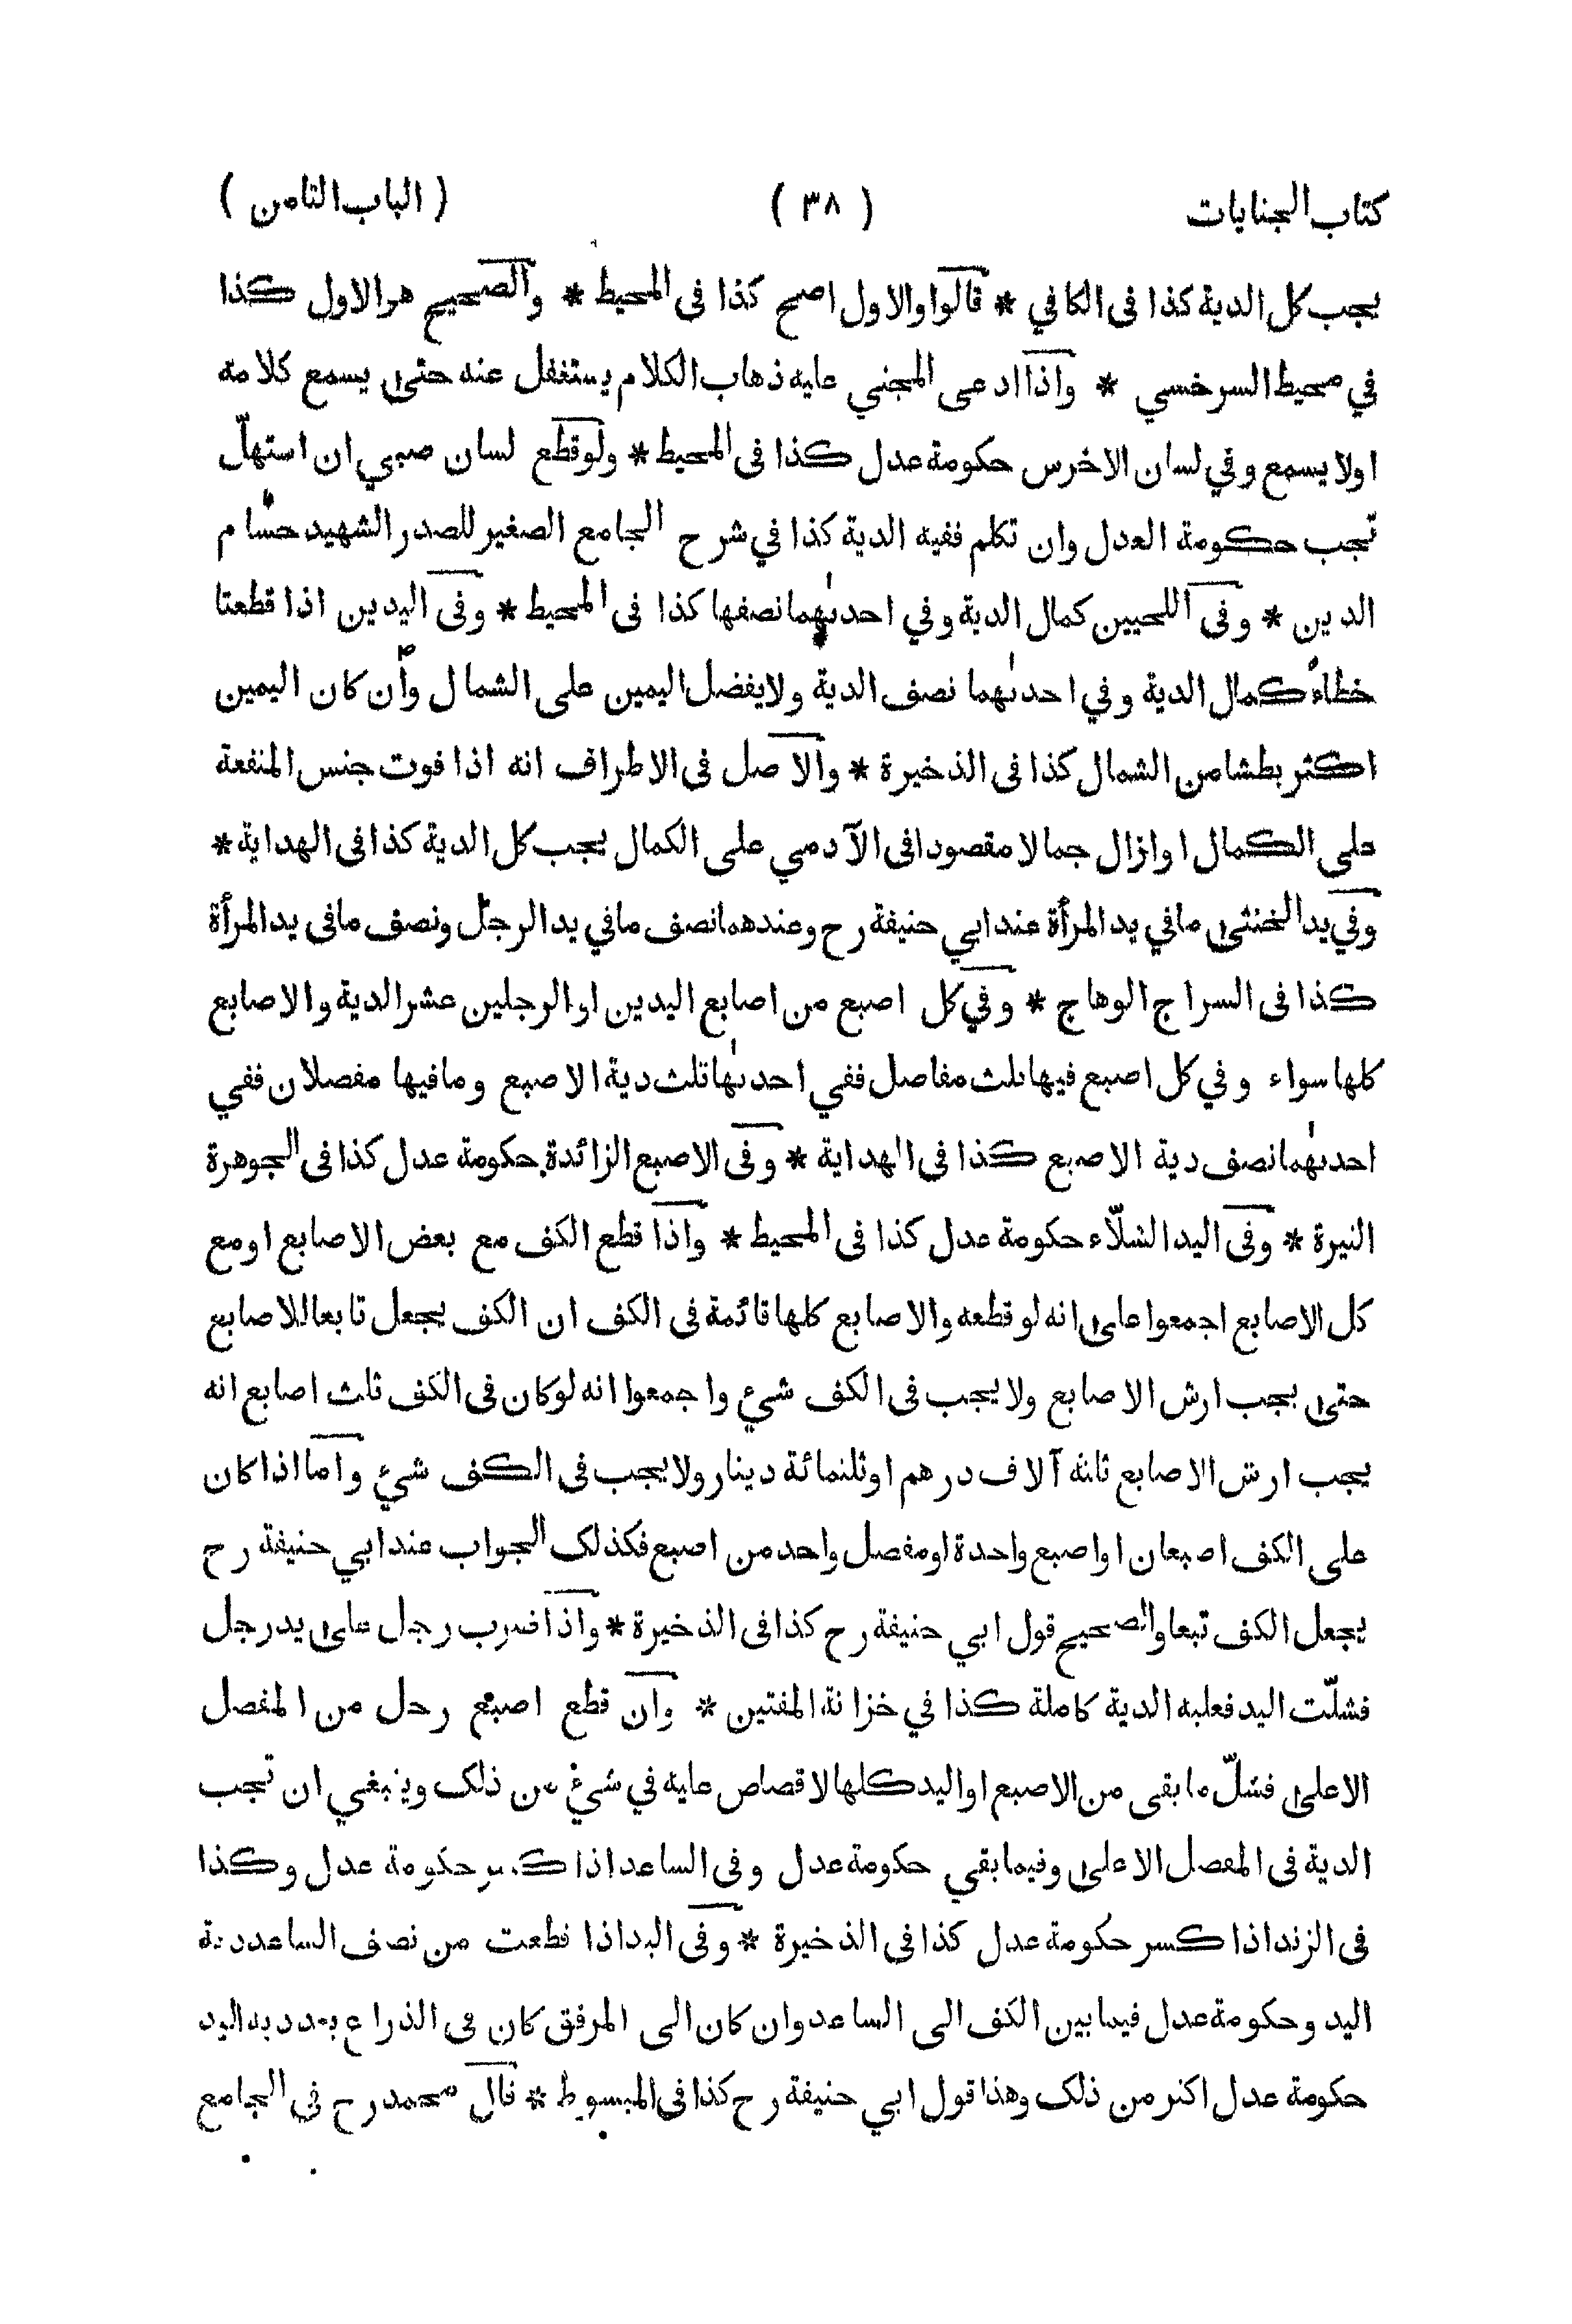 كتاب الجنايات ( ٣٨ ) ( الباب الثامن )
يجب كل الدية كذا فى الكافي * قالوا والاول اصح كذا فى المحيط * والصحيح هو الاول كذا
في محيط السرخسي * واذا ادعى المجني عليه ذهاب الكلام يستغفل عنه حتى يسمع كلامه
اولا يسمع وفي لسان الاخرس حكومة عدل كذا فى المحيط * ولو قطع لسان صبي ان استهلّ
تجب حكومة العدل وان تكلم ففيه الدية كذا في شرح الجامع الصغير للصدر الشهيد حسام
الدين * وفى اللحيين كمال الدية وفي احدٮٰهما نصفها كذا فى المحيط * وفى اليدين اذا قطعتا
خطاءً كمال الدية وفي احدٮٰهما نصف الدية ولا يفضل اليمين على الشمال وان كان اليمين
اكثر بطشا من الشمال كذا فى الذخيرة * والاصل فى الاطراف انه اذا فوت جنس المنفعة
على الكمال اوازال جمالا مقصودا فى الآدمي على الكمال يجب كل الدية كذا فى الهداية *
وفي يد الخنثى ما في يد المرأة عند ابي حنيفة رح وعندهما نصف ما في يد الرجل ونصف ما فى يد المرأة
كذا فى السراج الوهاج * وفي كل اصبع من اصابع اليدين او الرجلين عشر الدية والاصابع
كلها سواء وفي كل اصبع فيها ثلث مفاصل ففي احدٮٰها ثلث دية الاصبع وما فيها مفصلان ففي
احدٮٰهما نصف دية الاصبع كذا فى الهداية * وفى الاصبع الزائدة حكومة عدل كذا فى الجوهرة
النيرة * وفى اليد الشلّاء حكومة عدل كذا فى المحيط * واذا قطع الكف مع بعض الاصابع اومع
كل الاصابع اجمعوا على انه لو قطعه والاصابع كلها قائمة فى الكف ان الكف يجعل تابعا للاصابع
حتى يجب ارش الاصابع ولا يجب فى الكف شيء واجمعوا انه لوكان فى الكف ثلث اصابع انه
يجب ارش الاصابع ثلثه آلاف درهم اوثلثمائة دينار ولا يجب فى الكف شيء واما اذا كان
على الكف اصبعان او اصبع واحدة او مفصل واحد من اصبع فكذلك الجواب عند ابي حنيفة رح
يجعل الكف تبعا والصحيح قول ابي حنيفة رح كذا فى الذخيرة * واذا ضرب رجل على يد رجل
فشلّت اليد فعليه الدية كاملة كذا في خزانة المفتين * وان قطع اصبع رجل من المفصل
الاعلى فشلّ ما بقى من الاصبع او اليد كلها لا قصاص عليه في شيء من ذلك وينبغي ان تجب
الدية فى المفصل الاعلى وفيما بقي حكومة عدل وفى الساعد اذا كسر حكومة عدل وكذا
فى الزند اذا كسر حكومة عدل كذا فى الذخيرة * وفى اليد اذا قطعت من نصف الساعد دية
اليد وحكومة عدل فيما بين الكف الى الساعد وان كان الى المرفق كان فى الذراع بعد دية اليد
حكومة عدل اكثر من ذلك وهذا قول ابي حنيفة رح كذا فى المبسوط * قال محمد رح في الجامع